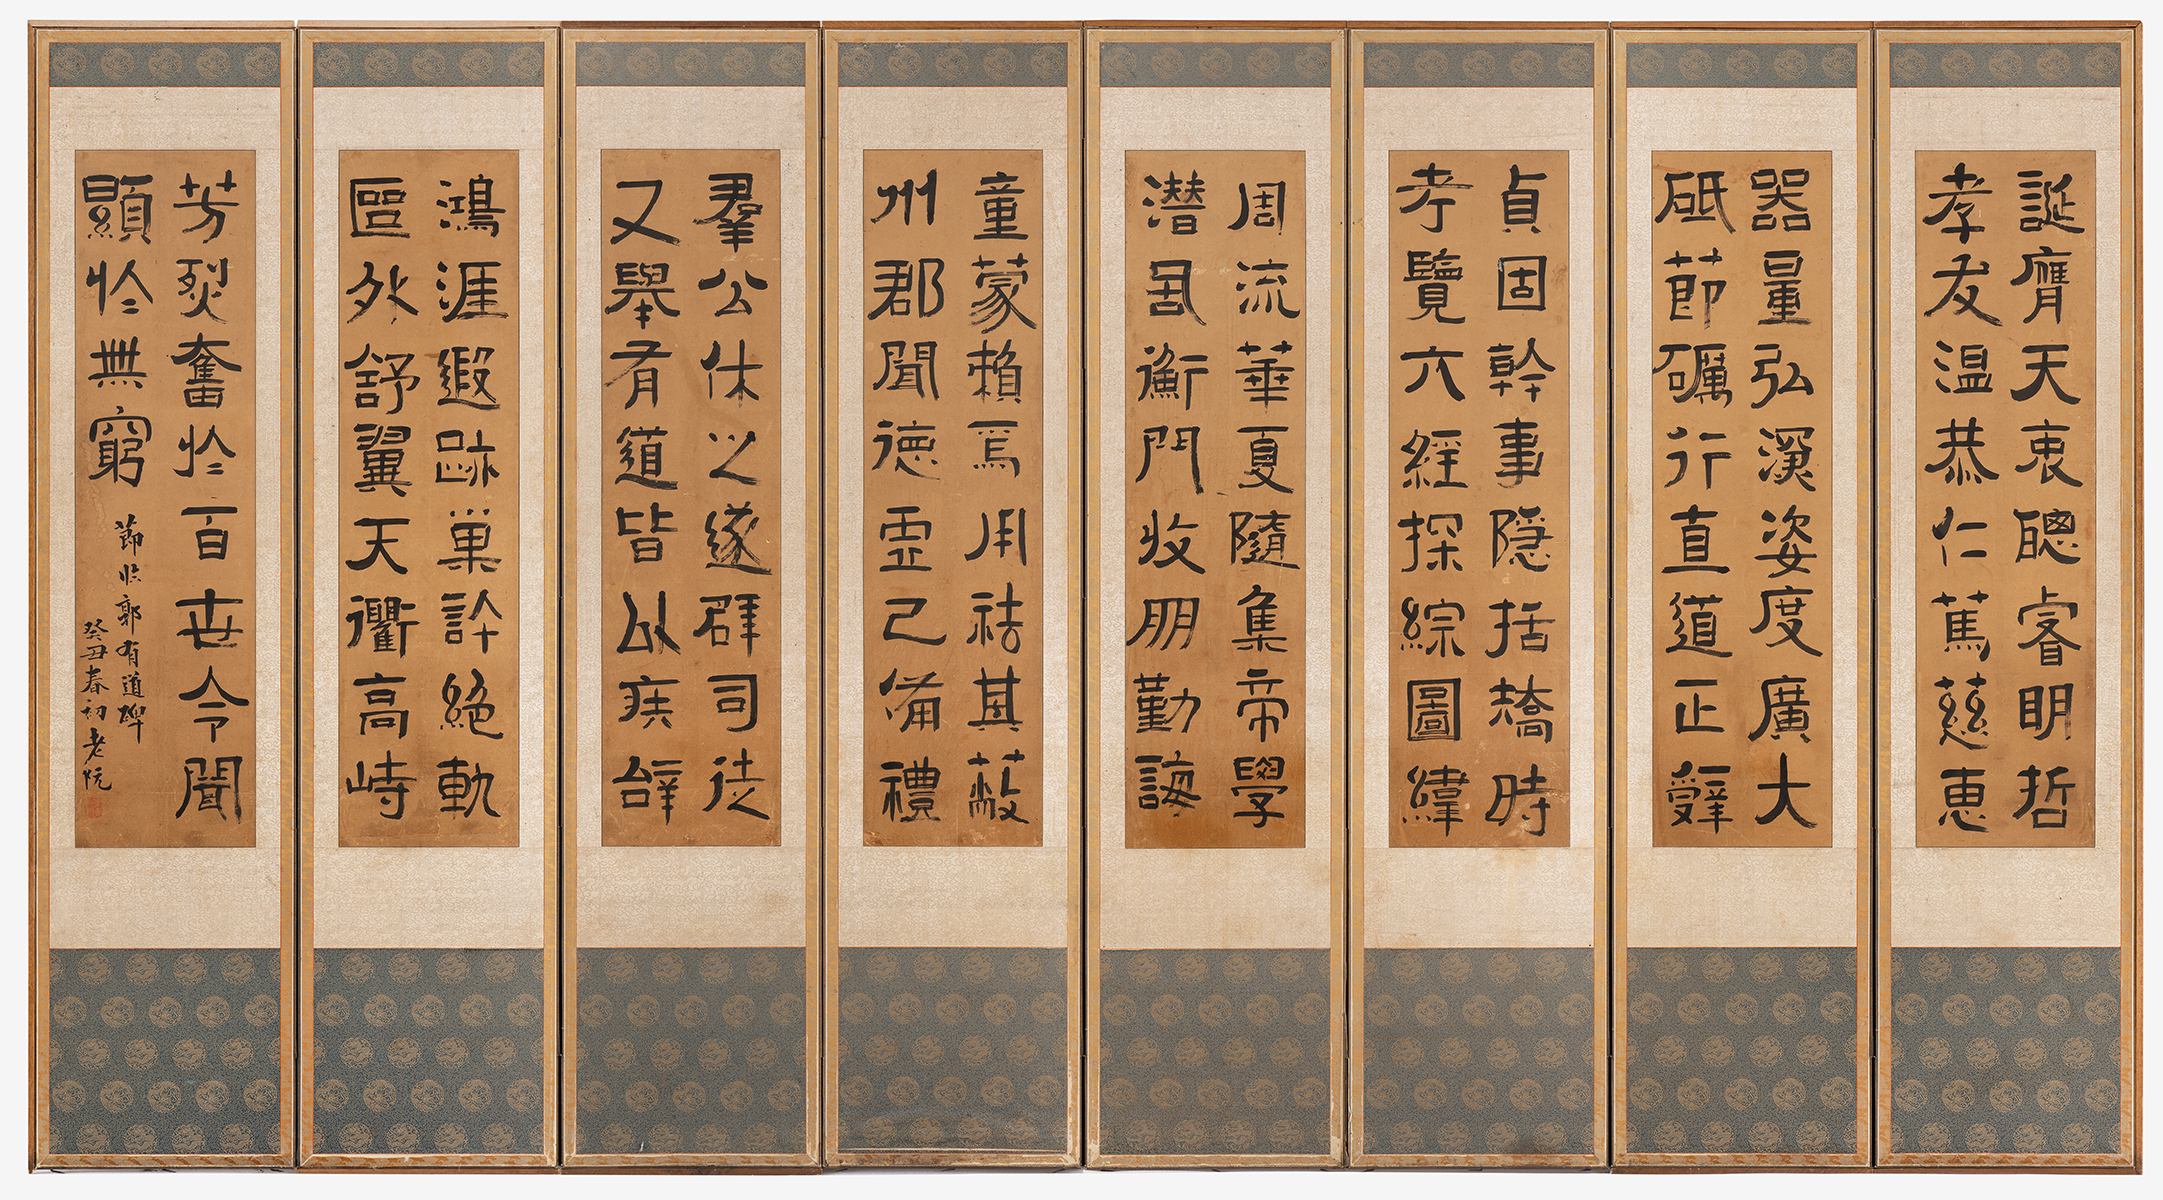 誕膺天衷聰睿明哲
孝友温恭仁篤慈惠
器量弘深姿度廣大
砥節礪行直道正辭
貞固幹事隱括矯時
考覽六經探綜圖緯
周流華夏隨集帝學
潛隱衡門收朋勤誨
童蒙賴焉用祛其蔽
州郡聞德虛己備禮
羣公休之遂辟司徒
又舉有道皆以疾辭
鴻涯遐跡巢許絕軌
區外舒翼天衢高峙
芳烈奮於百世令聞
顯於無窮
節临郭有道碑
癸丑春初老阮